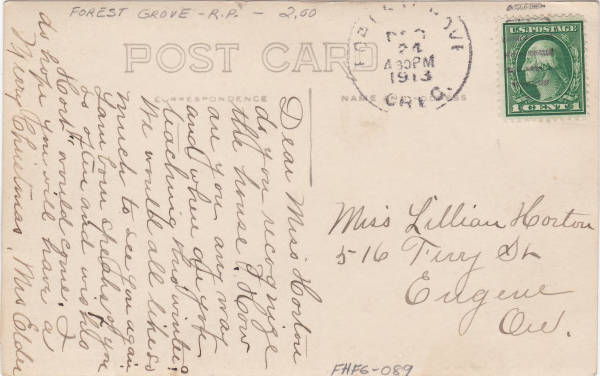 FOREST GROVE - R.P. - 2.00
POST CARD
CORRESPONDENCE
NAME
ADDRESS
FOREST GROVE
DEC
24
4 30 PM
1913
OREG.
U.S. POSTAGE
1 CENT 1
Dear Miss Horton
do you recognize
the house? How
are you any way
and where are you
teaching this winter?
We would all like so
much to see you again.
Lam born speaks of you
so often and wishes
"Hort" would come. I
do hope you will have a
Merry Christmas. Mrs Elder
Miss Lillian Horton
516 Ferry St
Eugene
Ore.
FHFG-089